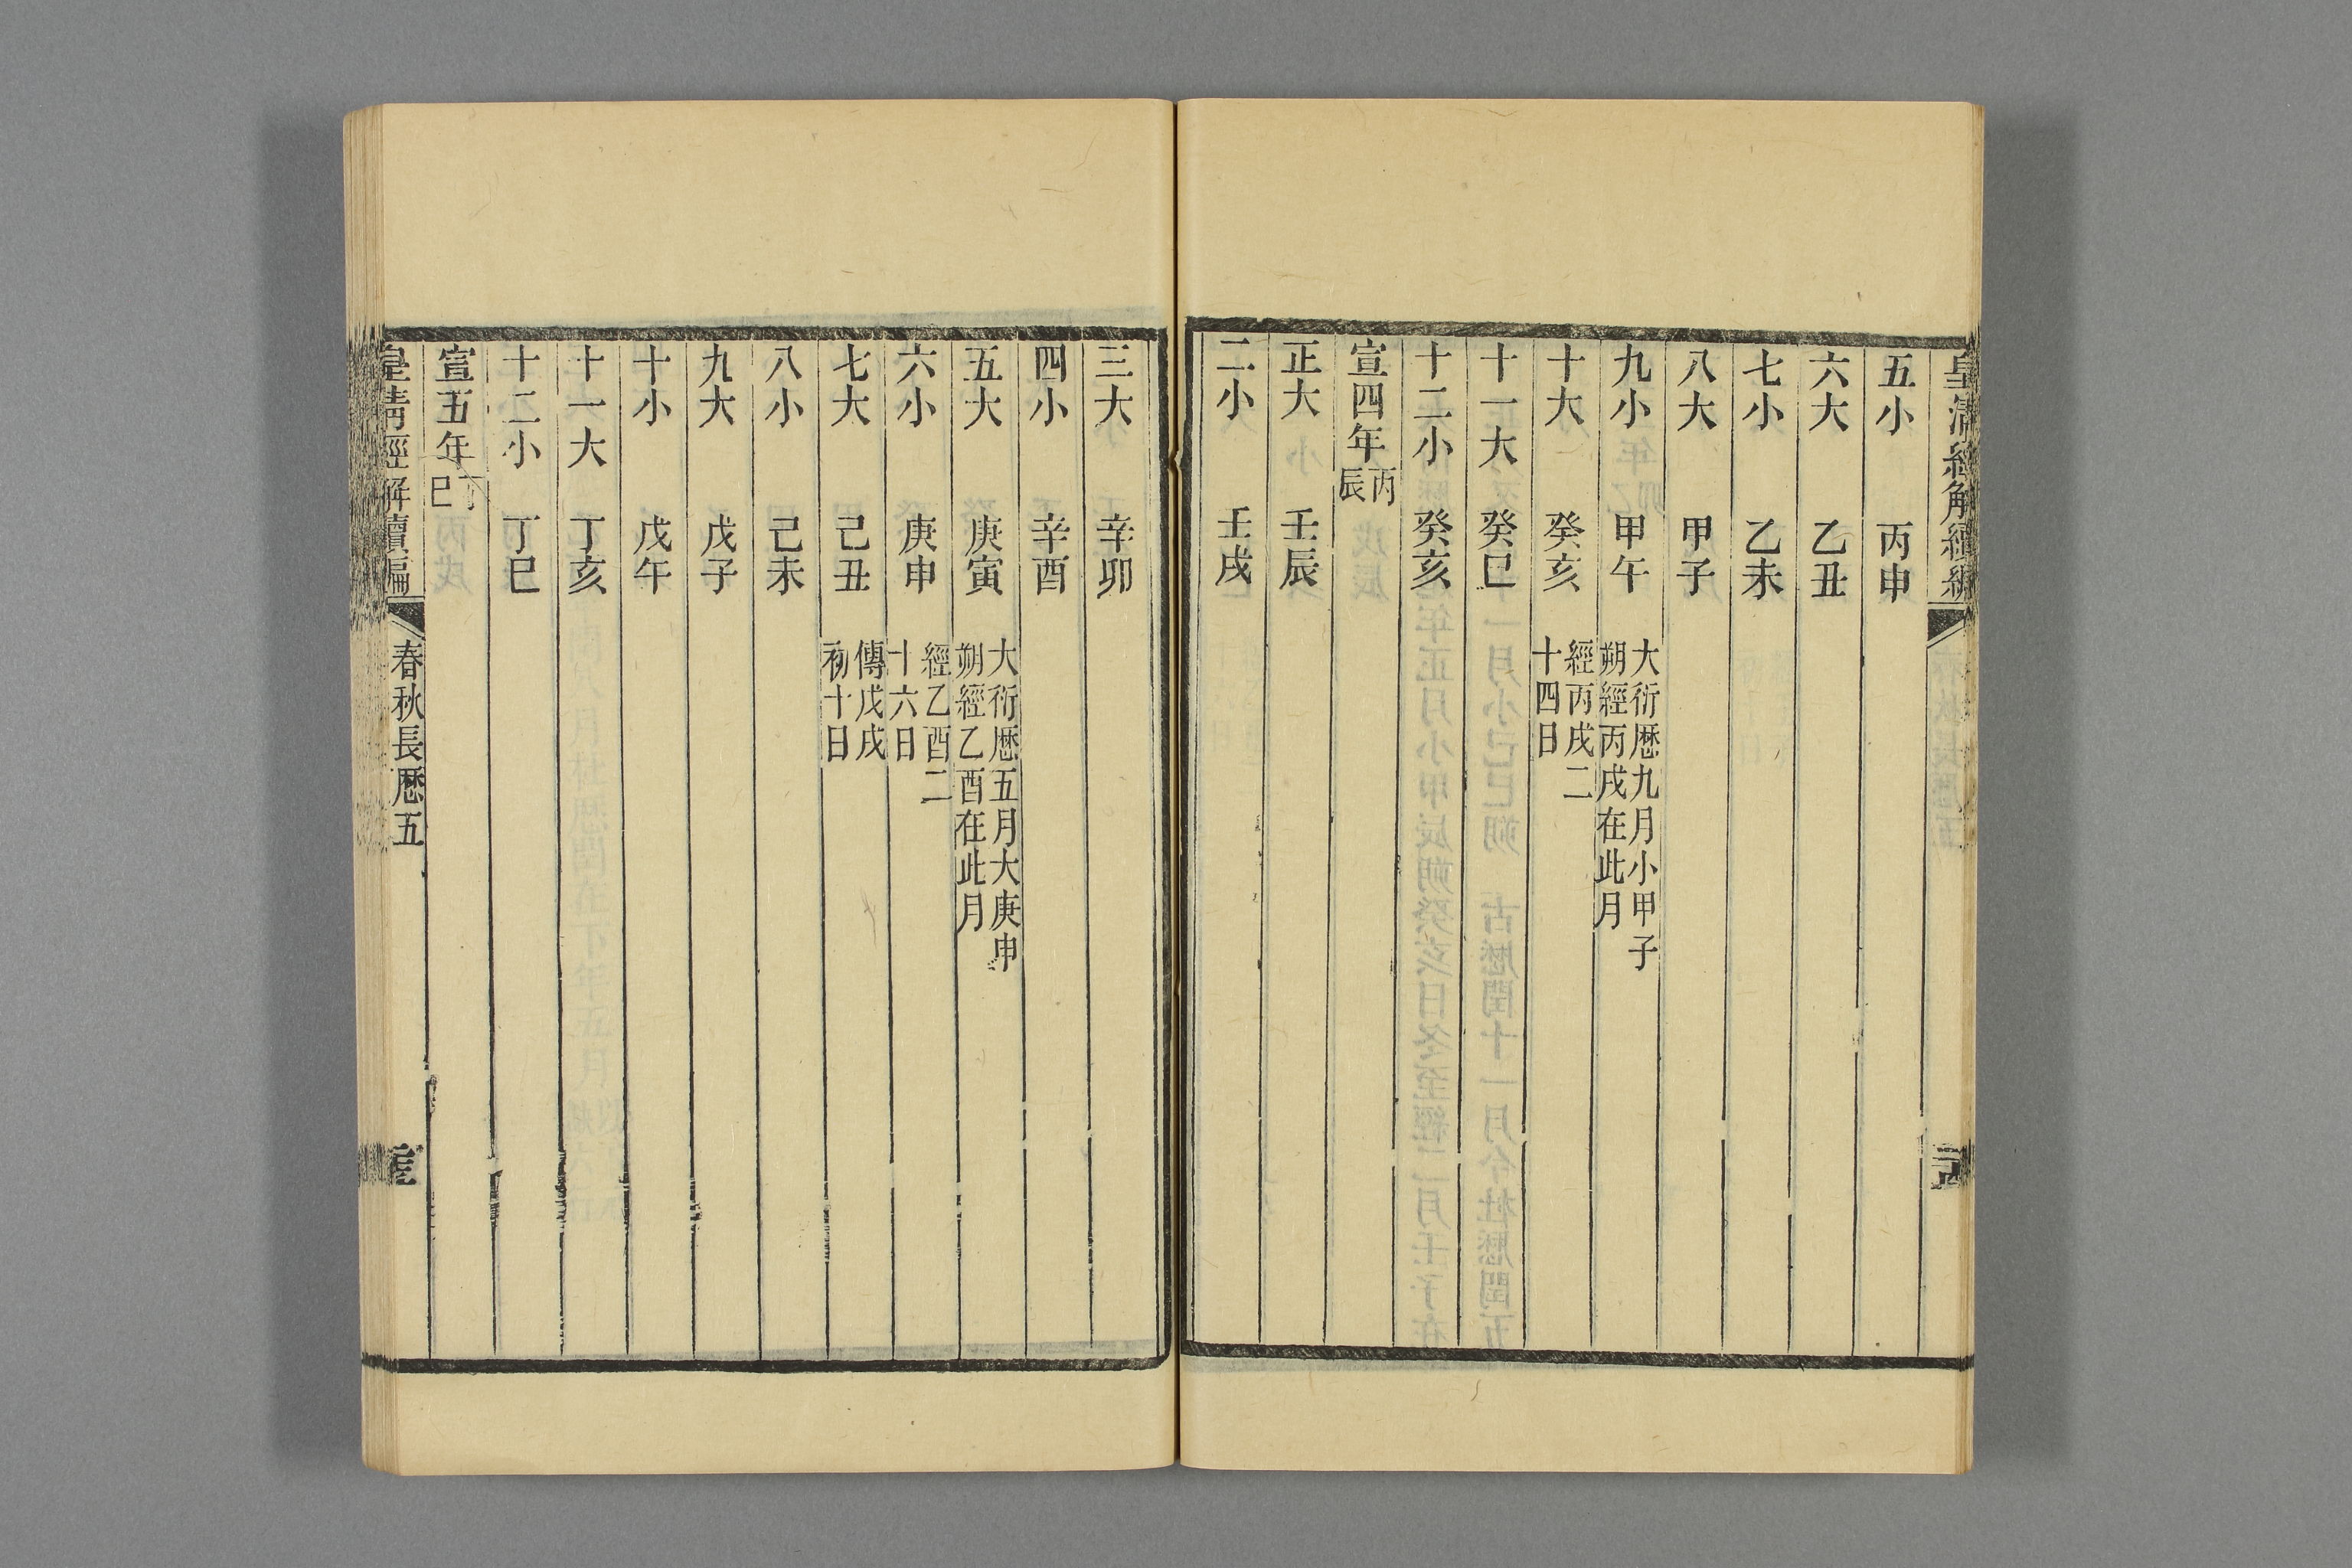 五小 丙申
六大 乙丑
七小 乙未
八大 甲子
九小 甲午 大衍曆九月小甲子
朔經丙戌在此月
十大 癸亥 經丙戌二
十四日
十一大 癸巳
十二小 癸亥
宣四年 丙
辰
正大 壬辰
二小 壬戌
三大 辛卯
四小 辛酉
五大 庚寅 大衍曆五月大庚申
朔經乙酉在此月
六小 庚申 經乙酉二
十六日
七大 己丑 傳戊戌
初十日
八小 己未
九大 戊子
十小 戊午
十一大 丁亥
十二小 丁巳
宣五年 丁
巳
皇清經解續編 春秋長曆五